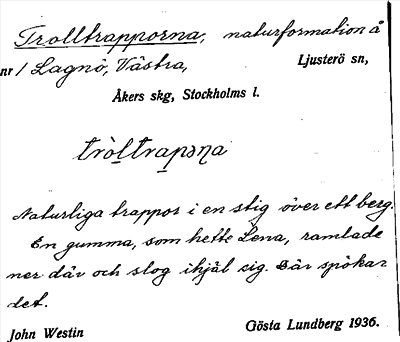 Trolltrapporna, naturformation å
nr 1 Lagnö, Västra, Ljusterö sn,
Åkers skg, Stockholms l.
tròltrapəna
Naturliga trappor i en stig över ett berg.
En gumma, som hette Lena, ramlade
ner där och slog ihjäl sig. Där spökar
det.
John Westin Gösta Lundberg 1936.